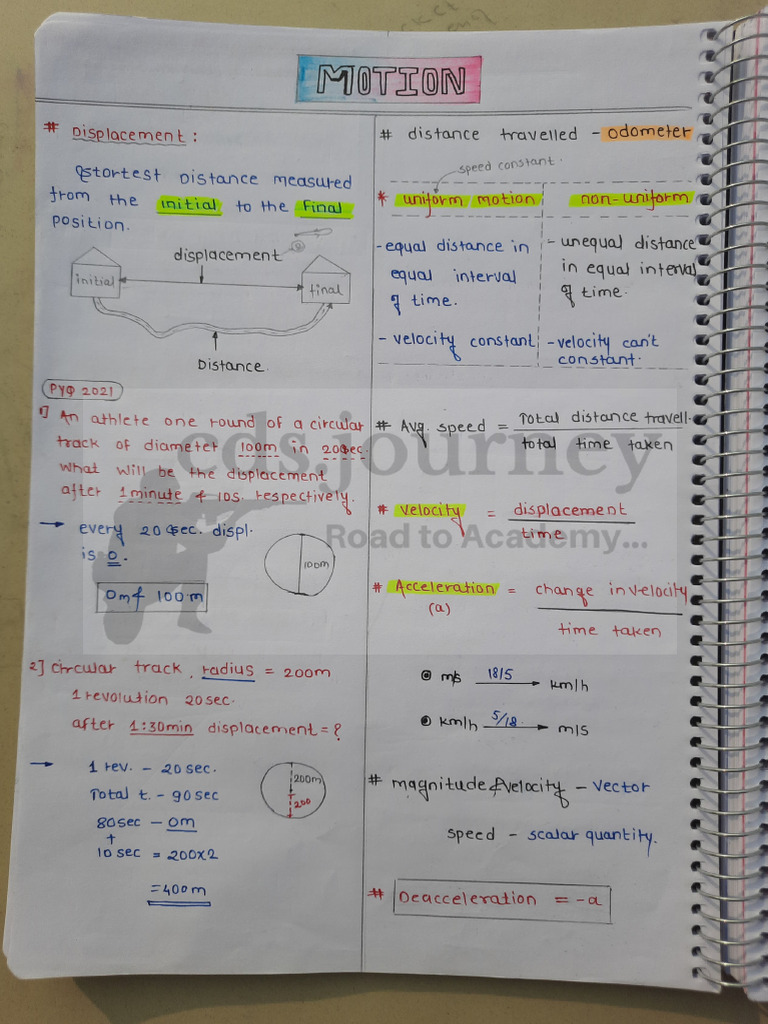 MOTION
# Displacement :
Shortest Distance measured
from the initial to the Final
position.
displacement
initial
final
Distance
PYQ 2021
1) An athlete one round of a circular
track of diameter 100m in 20sec.
what will be the displacement
after 1minute & 10s. respectively.
→ every 20 sec. displ.
is 0.
100m
0m & 100 m
2] circular track, radius = 200m
1 revolution 20sec.
after 1:30min displacement = ?
→ 1 rev. - 20 sec.
Total t. - 90sec
80sec - 0m
+
10 sec = 200x2
= 400m
200m
200
# distance travelled - odometer
speed constant.
* uniform motion
non-uniform
- equal distance in
equal interval
of time.
- velocity constant
- unequal distance
in equal interval
of time.
- velocity can't
constant.
# Avg. speed = Total distance travell.
total time taken
# velocity = displacement
time
# Acceleration = change in velocity
(a)
time taken
m/s 18/5 → km/h
km/h 5/18 → m/s
# magnitude & velocity - vector
speed - scalar quantity.
# Deacceleration = -a
cds.journey
Road to Academy...